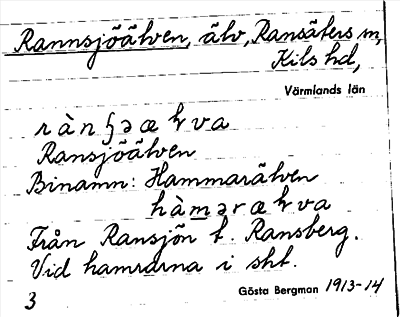 Rannsjöälven, älv, Ransäters sn,
Kils hd,
Värmlands län
Ransjöälven
Binamn: Hammarälven
Från Ransjön t. Ransberg.
Vid hamrarna i sht.
Gösta Bergman 1913-14
3